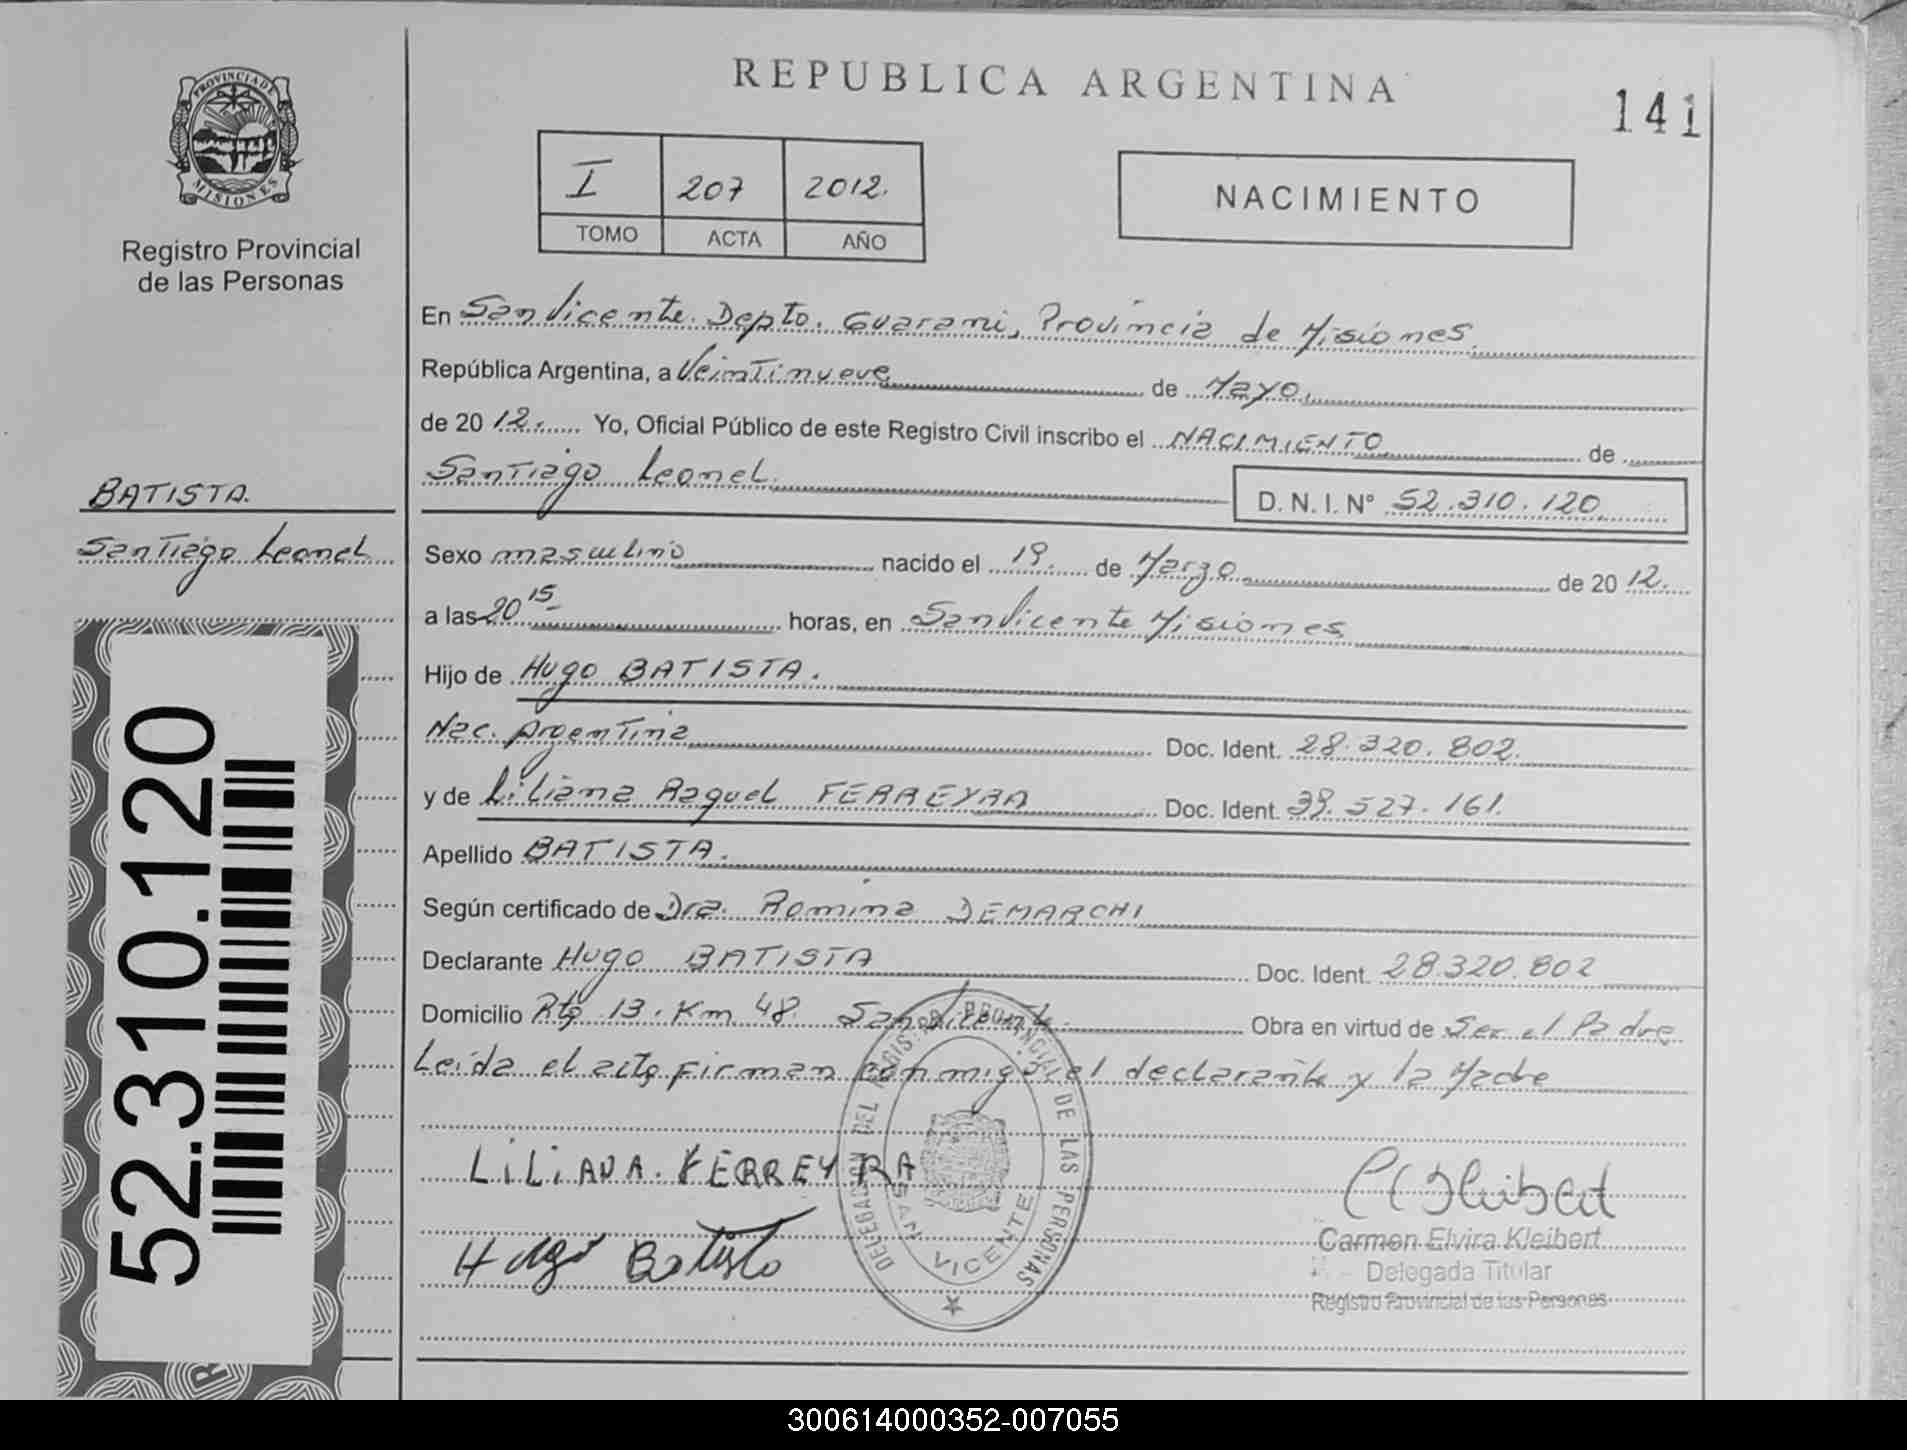 REPUBLICA ARGENTINA
141
PROVINCIA DE
MISIONES
Registro Provincial
de las Personas
I 207 2012.
TOMO ACTA AÑO
NACIMIENTO
En San Vicente. Depto. Guarani, Provincia de Misiones.
República Argentina, a Veintinueve de Mayo.
de 20 12. Yo, Oficial Público de este Registro Civil inscribo el NACIMIENTO de
Santiago Leonel. D. N. I. Nº 52.310.120
BATISTA.
Santiago Leonel
Sexo masculino nacido el 19. de Marzo de 20 12.
a las 20 15 horas, en San Vicente Misiones
Hijo de Hugo BATISTA.
Nac. Argentina Doc. Ident. 28.320.802.
y de Liliana Raquel FERREYRA Doc. Ident. 39.527.161.
Apellido BATISTA.
Según certificado de Dra. Romina DEMARCHI
Declarante Hugo BATISTA Doc. Ident. 28.320.802
Domicilio Rta 13. Km 48 San Vicente. Obra en virtud de Ser el Padre
Leída el acta firman conmigo el declarante y la Madre
LiLiANA FERREYRA
Hugo Batista
DELEGACION DEL REGISTRO PROVINCIAL DE LAS PERSONAS
SAN VICENTE
Carmen Elvira Kleibert
Delegada Titular
Registro Provincial de las Personas
52.310.120
300614000352-007055